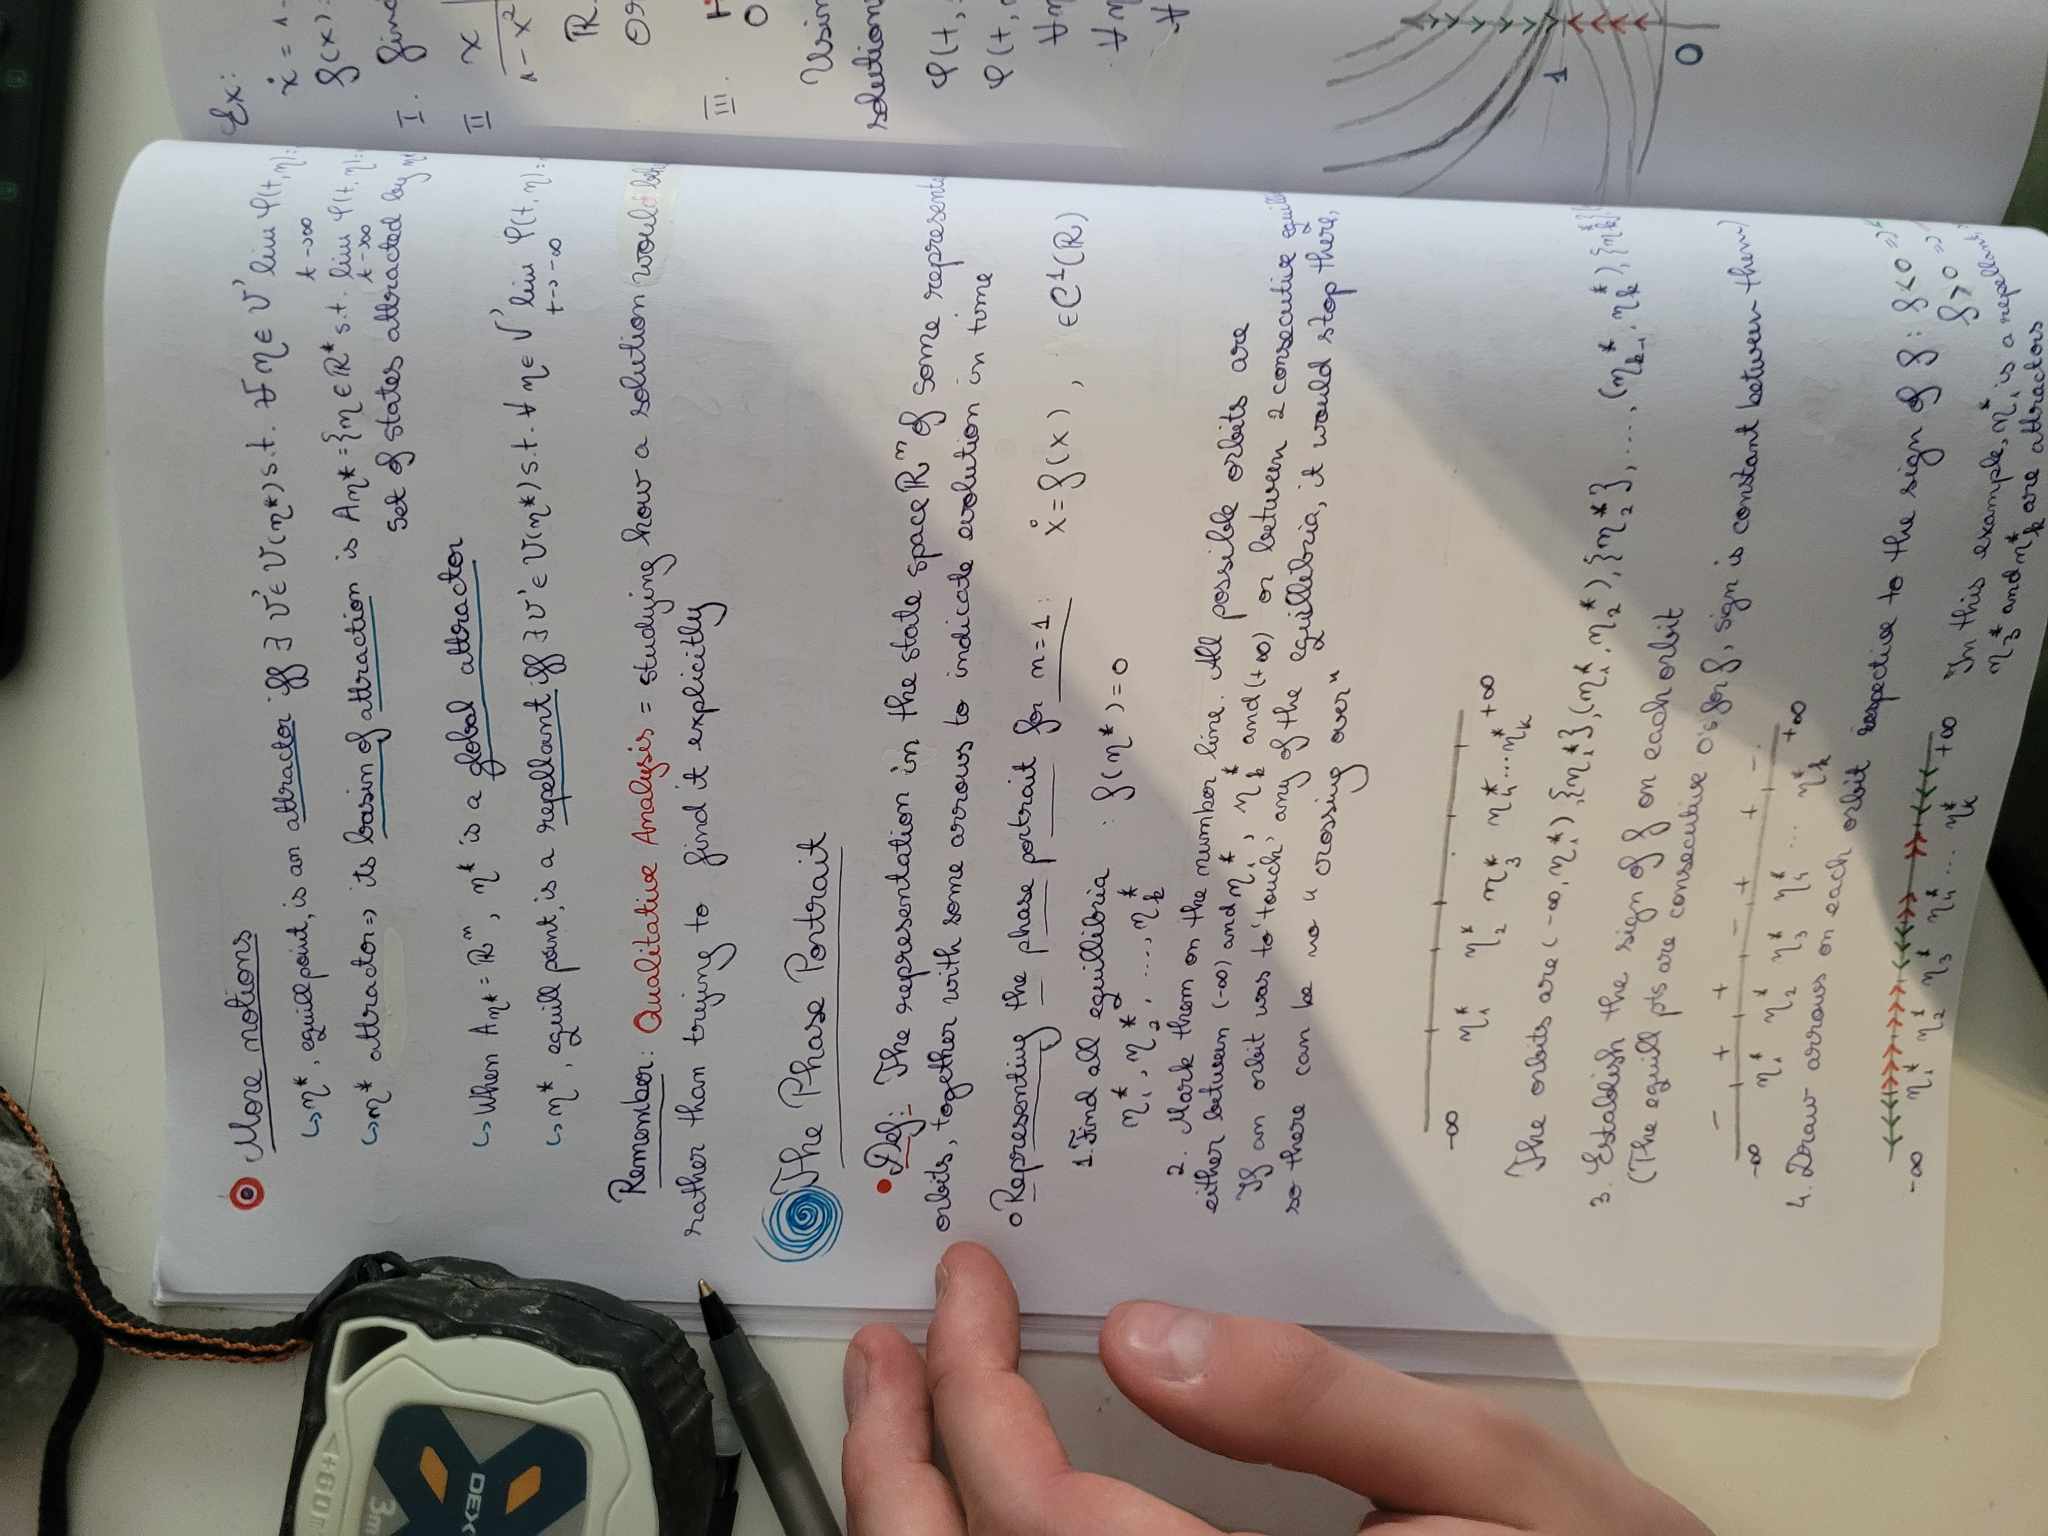 More notions
↳ η*, equil point, is an attractor iff ∃ V' ∈ V(η*) s.t. ∀ η ∈ V' lim φ(t, η) =
t→∞
↳ η* attractor => its basin of attraction is Aη* = {η ∈ R* s.t. lim φ(t, η) =
t→∞
set of states attracted by
↳ When Aη* = Rⁿ, η* is a global attractor
↳ η*, equill point, is a repellant iff ∃ V' ∈ V(η*) s.t. ∀ η ∈ V' lim φ(t, η) =
t→-∞
Remember: Qualitative Analysis = studying how a solution would
rather than trying to find it explicitly
The Phase Portrait
• Def: The representation in the state space Rⁿ of some
orbits, together with some arrows to indicate evolution in time
o Representing the phase portrait for n=1: ẋ = f(x), ∈ C¹(R)
1. Find all equillibria : f(η*) = 0
η₁*, η₂*, ...., ηk*
2. Mark them on the number line. All possible orbits are
either between (-∞) and η₁*, ηk* and (+∞) or between 2 consecutive
If an orbit was to 'touch' any of the equillibria, it would stop there,
so there can be no "crossing over"
-∞ η₁* η₂* η₃* η₄* .... ηk* +∞
The orbits are (-∞, η₁*), {η₁*}, (η₁*, η₂*), {η₂*}, ...., (ηk-1*, ηk*), {ηk*}
3. Establish the sign of f on each orbit
(The equill pts are consecutive 0's for f, sign is constant between them)
- + + - + + -
-∞ η₁* η₂* η₃* η₄* ... ηk* +∞
4. Draw arrows on each orbit respective to the sign of f: f<0 =>
f>0 =>
-∞ η₁* η₂* η₃* η₄* .... ηk* +∞
In this example, η₁* is a repellant,
η₃* and ηk* are attractors
Ex:
ẋ = 1 -
f(x) =
I. find
II x
1 - x²
R
III.
Using
solution
φ(t,
φ(t,
∀η
∀η
∀
1
0
3m
DEX